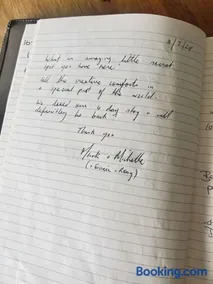 What an amazing little secret
spot you have here.
All the creature comforts in
a special part of the world.
We loved our 4 day stay & will
definitely be back!
Thank you
& Michelle
Booking.com